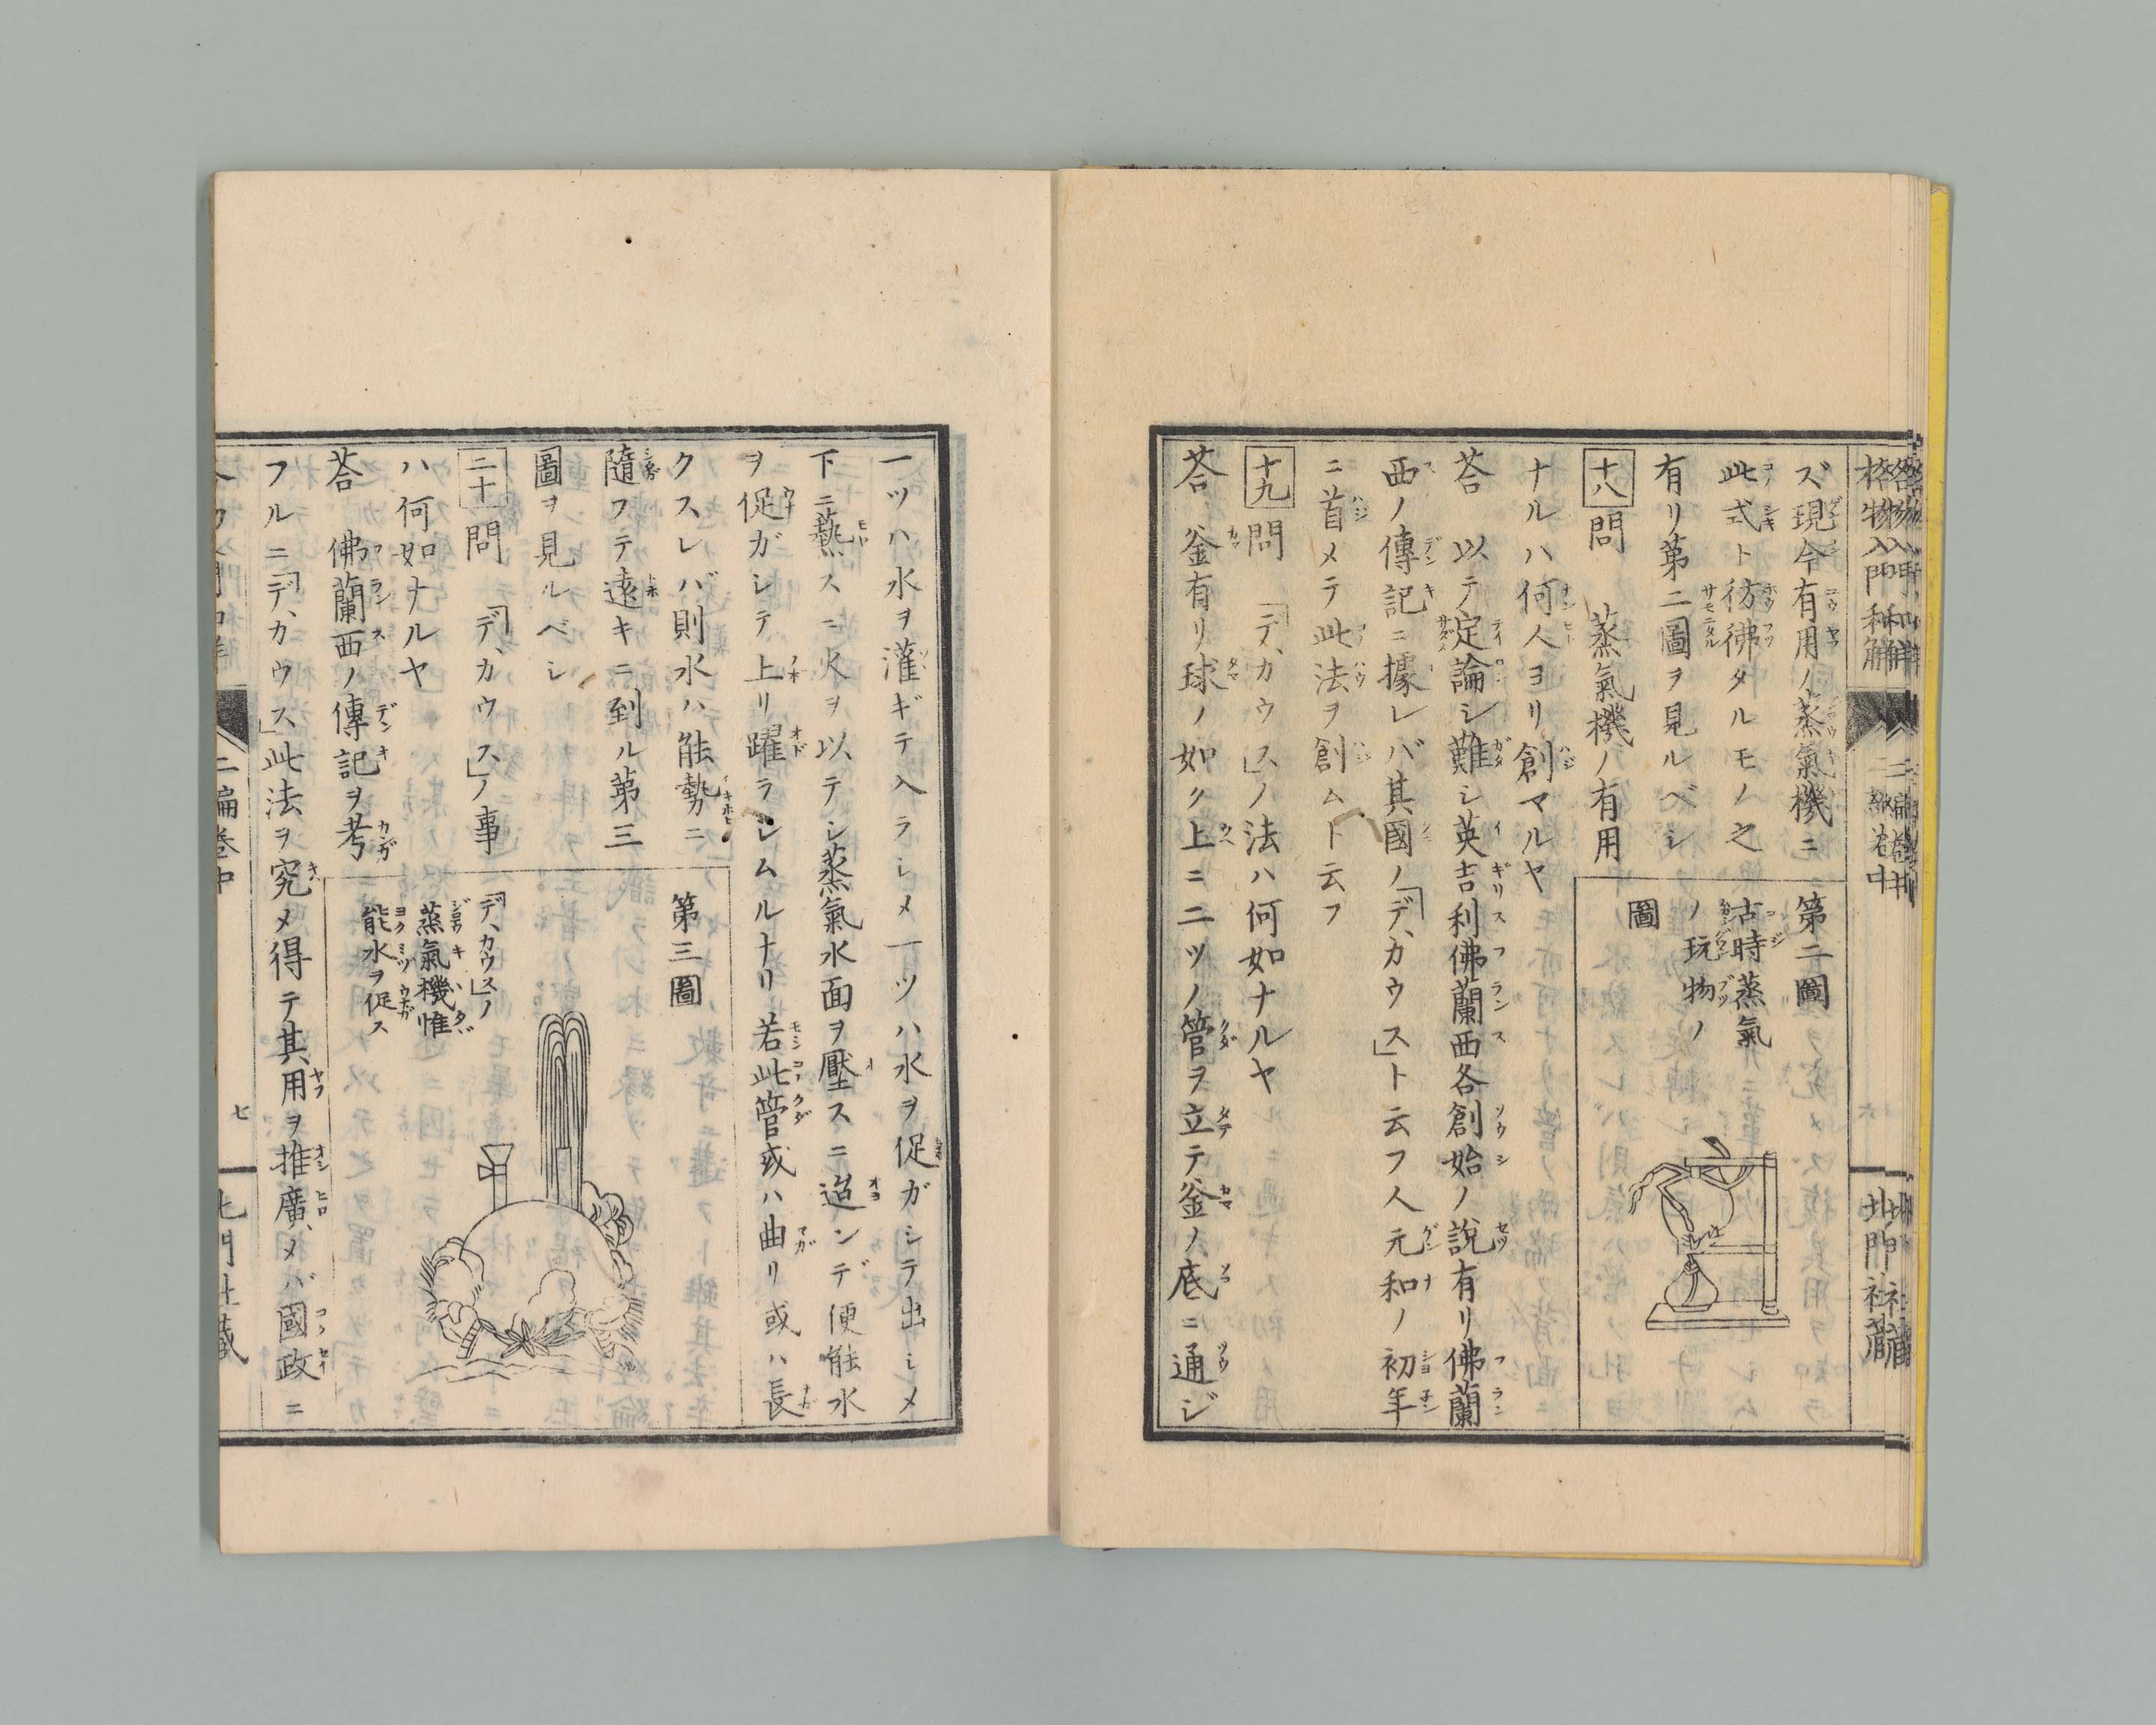 格物入門和解
二編卷中
北門社藏
ズ現今有用ノ蒸氣機ニ
此式ト彷彿タルモノ之
有リ第二圖ヲ見ルベシ
十八問 蒸氣機ノ有用
ナルハ何人ヨリ創マルヤ
第二圖
古時蒸氣
ノ玩物ノ
圖
荅 以テ定論シ難シ英吉利佛蘭西各創始ノ說有リ佛蘭
西ノ傳記ニ據レバ其國ノ「デ、カウス」ト云フ人元和ノ初年
ニ首メテ此法ヲ創ムト云フ
十九問 「デ、カウス」ノ法ハ何如ナルヤ
荅 釜有リ球ノ如ク上ニ二ツノ管ヲ立テ釜ノ底ニ通ジ
一ツハ水ヲ灌ギテ入ラシメ一ツハ水ヲ促ガシテ出シメ
下ニ爇スニ火ヲ以テシ蒸氣水面ヲ壓スニ迨ンデ便能水
ヲ促ガシテ上リ躍ラシムルナリ若此管或ハ曲リ或ハ長
クスレバ則水ハ能勢ニ
隨フテ遠キニ到ル第三
圖ヲ見ルベシ
二十問 「デ、カウス」ノ事
ハ何如ナルヤ
荅 佛蘭西ノ傳記ヲ考
第三圖
「デ、カウス」ノ
蒸氣機惟
能水ヲ促ス
フルニ「デ、カウス」此法ヲ究メ得テ其用ヲ推廣メバ國政ニ
二編卷中
七
北門社藏